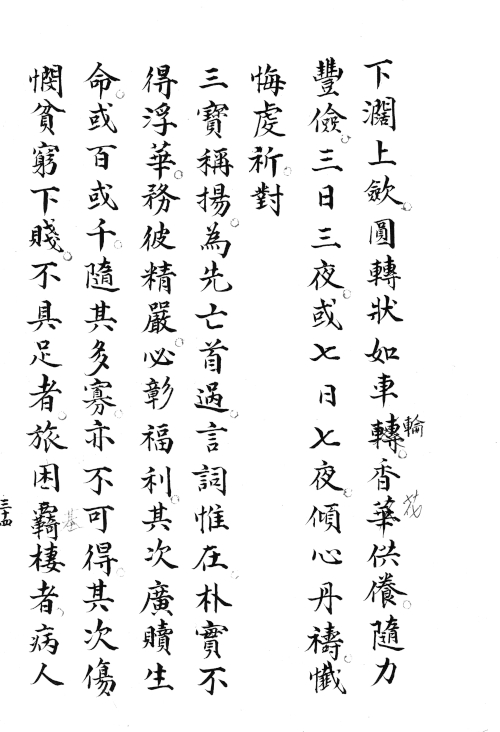 下濶上歛圓轉狀如車轉香華供養隨力
輪
花
豐儉三日三夜或七日七夜傾心丹禱懺
悔虔祈對
三寶稱揚為先亡首過言詞惟在朴實不
得浮華務彼精嚴必彰福利其次廣贖生
命或百或千隨其多寡亦不可得其次傷
憫貧窮下賤不具足者旅困羈棲者病人
三十四